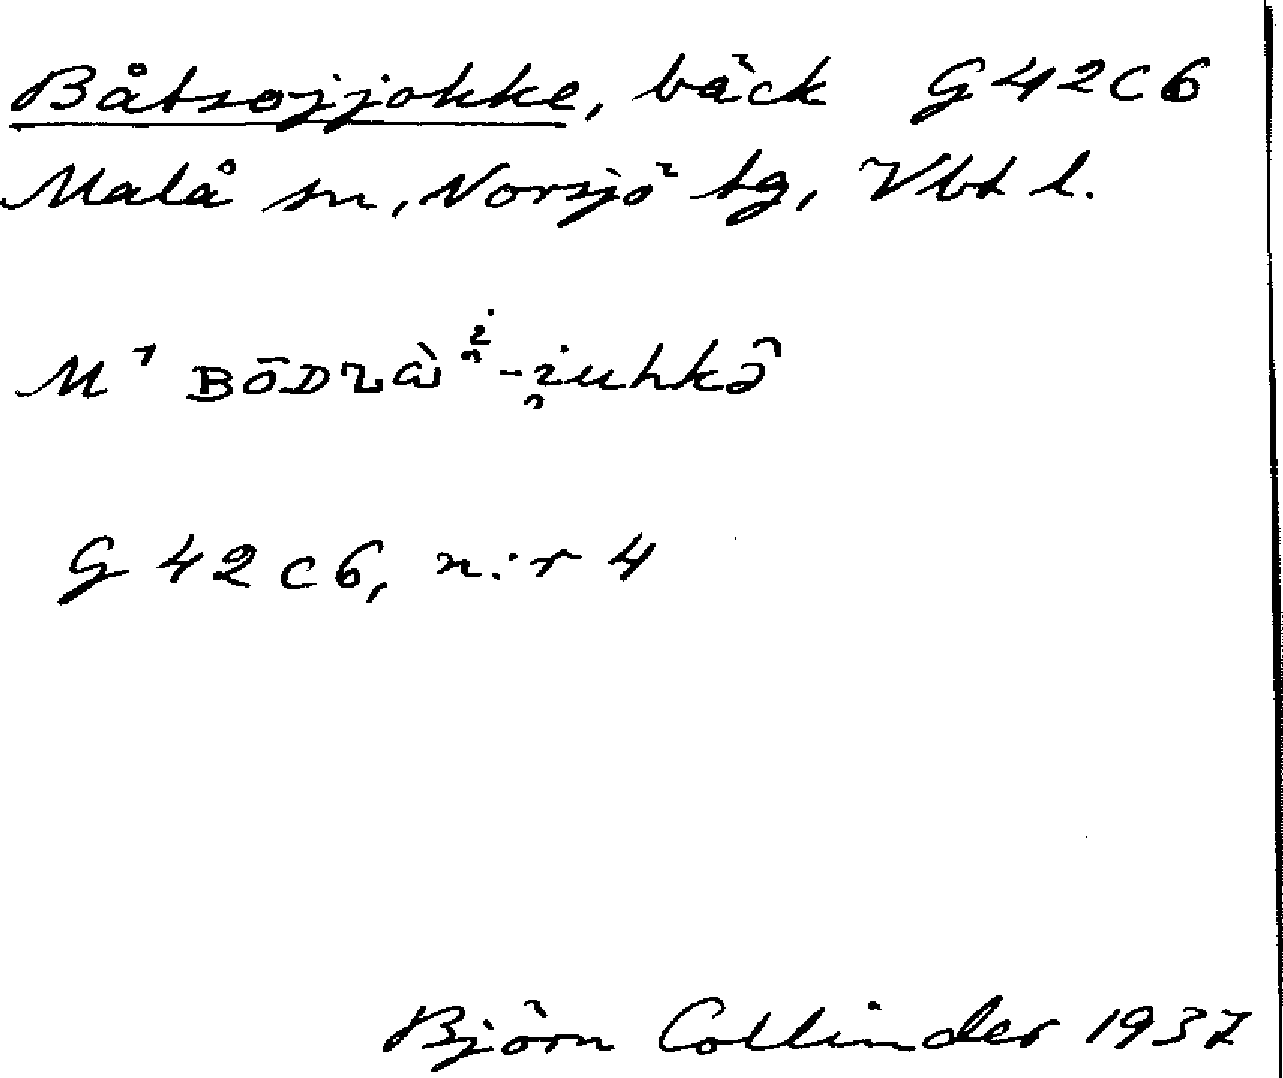 Båtsojjokke, bäck G42C6
Malå sn, Norsjö tg, Vbt l.
M⁊ ʙōᴅᴢὰi̯-i̯uhkə̑
G 42 C6, n:r 4
Björn Collinder 1937